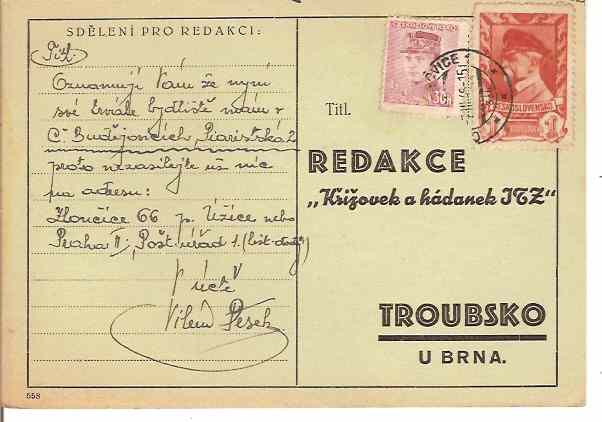 SDĚLENÍ PRO REDAKCI:
Titl.
Oznamuji Vám že nyní
své trvalé bydliště mám v
Č. Budějovicích, Piaristská 2
proto nezasílejte už nic
na adresu:
Zlončice 66 p. Úžice nebo
Praha II; Pošt. úřad 1.
V úctě
Vilém Pešek
558
ČESKOSLOVENSKO
30h
ČESKOSLOVENSKO
1
Titl.
REDAKCE
„Křížovek a hádanek ITZ"
TROUBSKO
U BRNA.